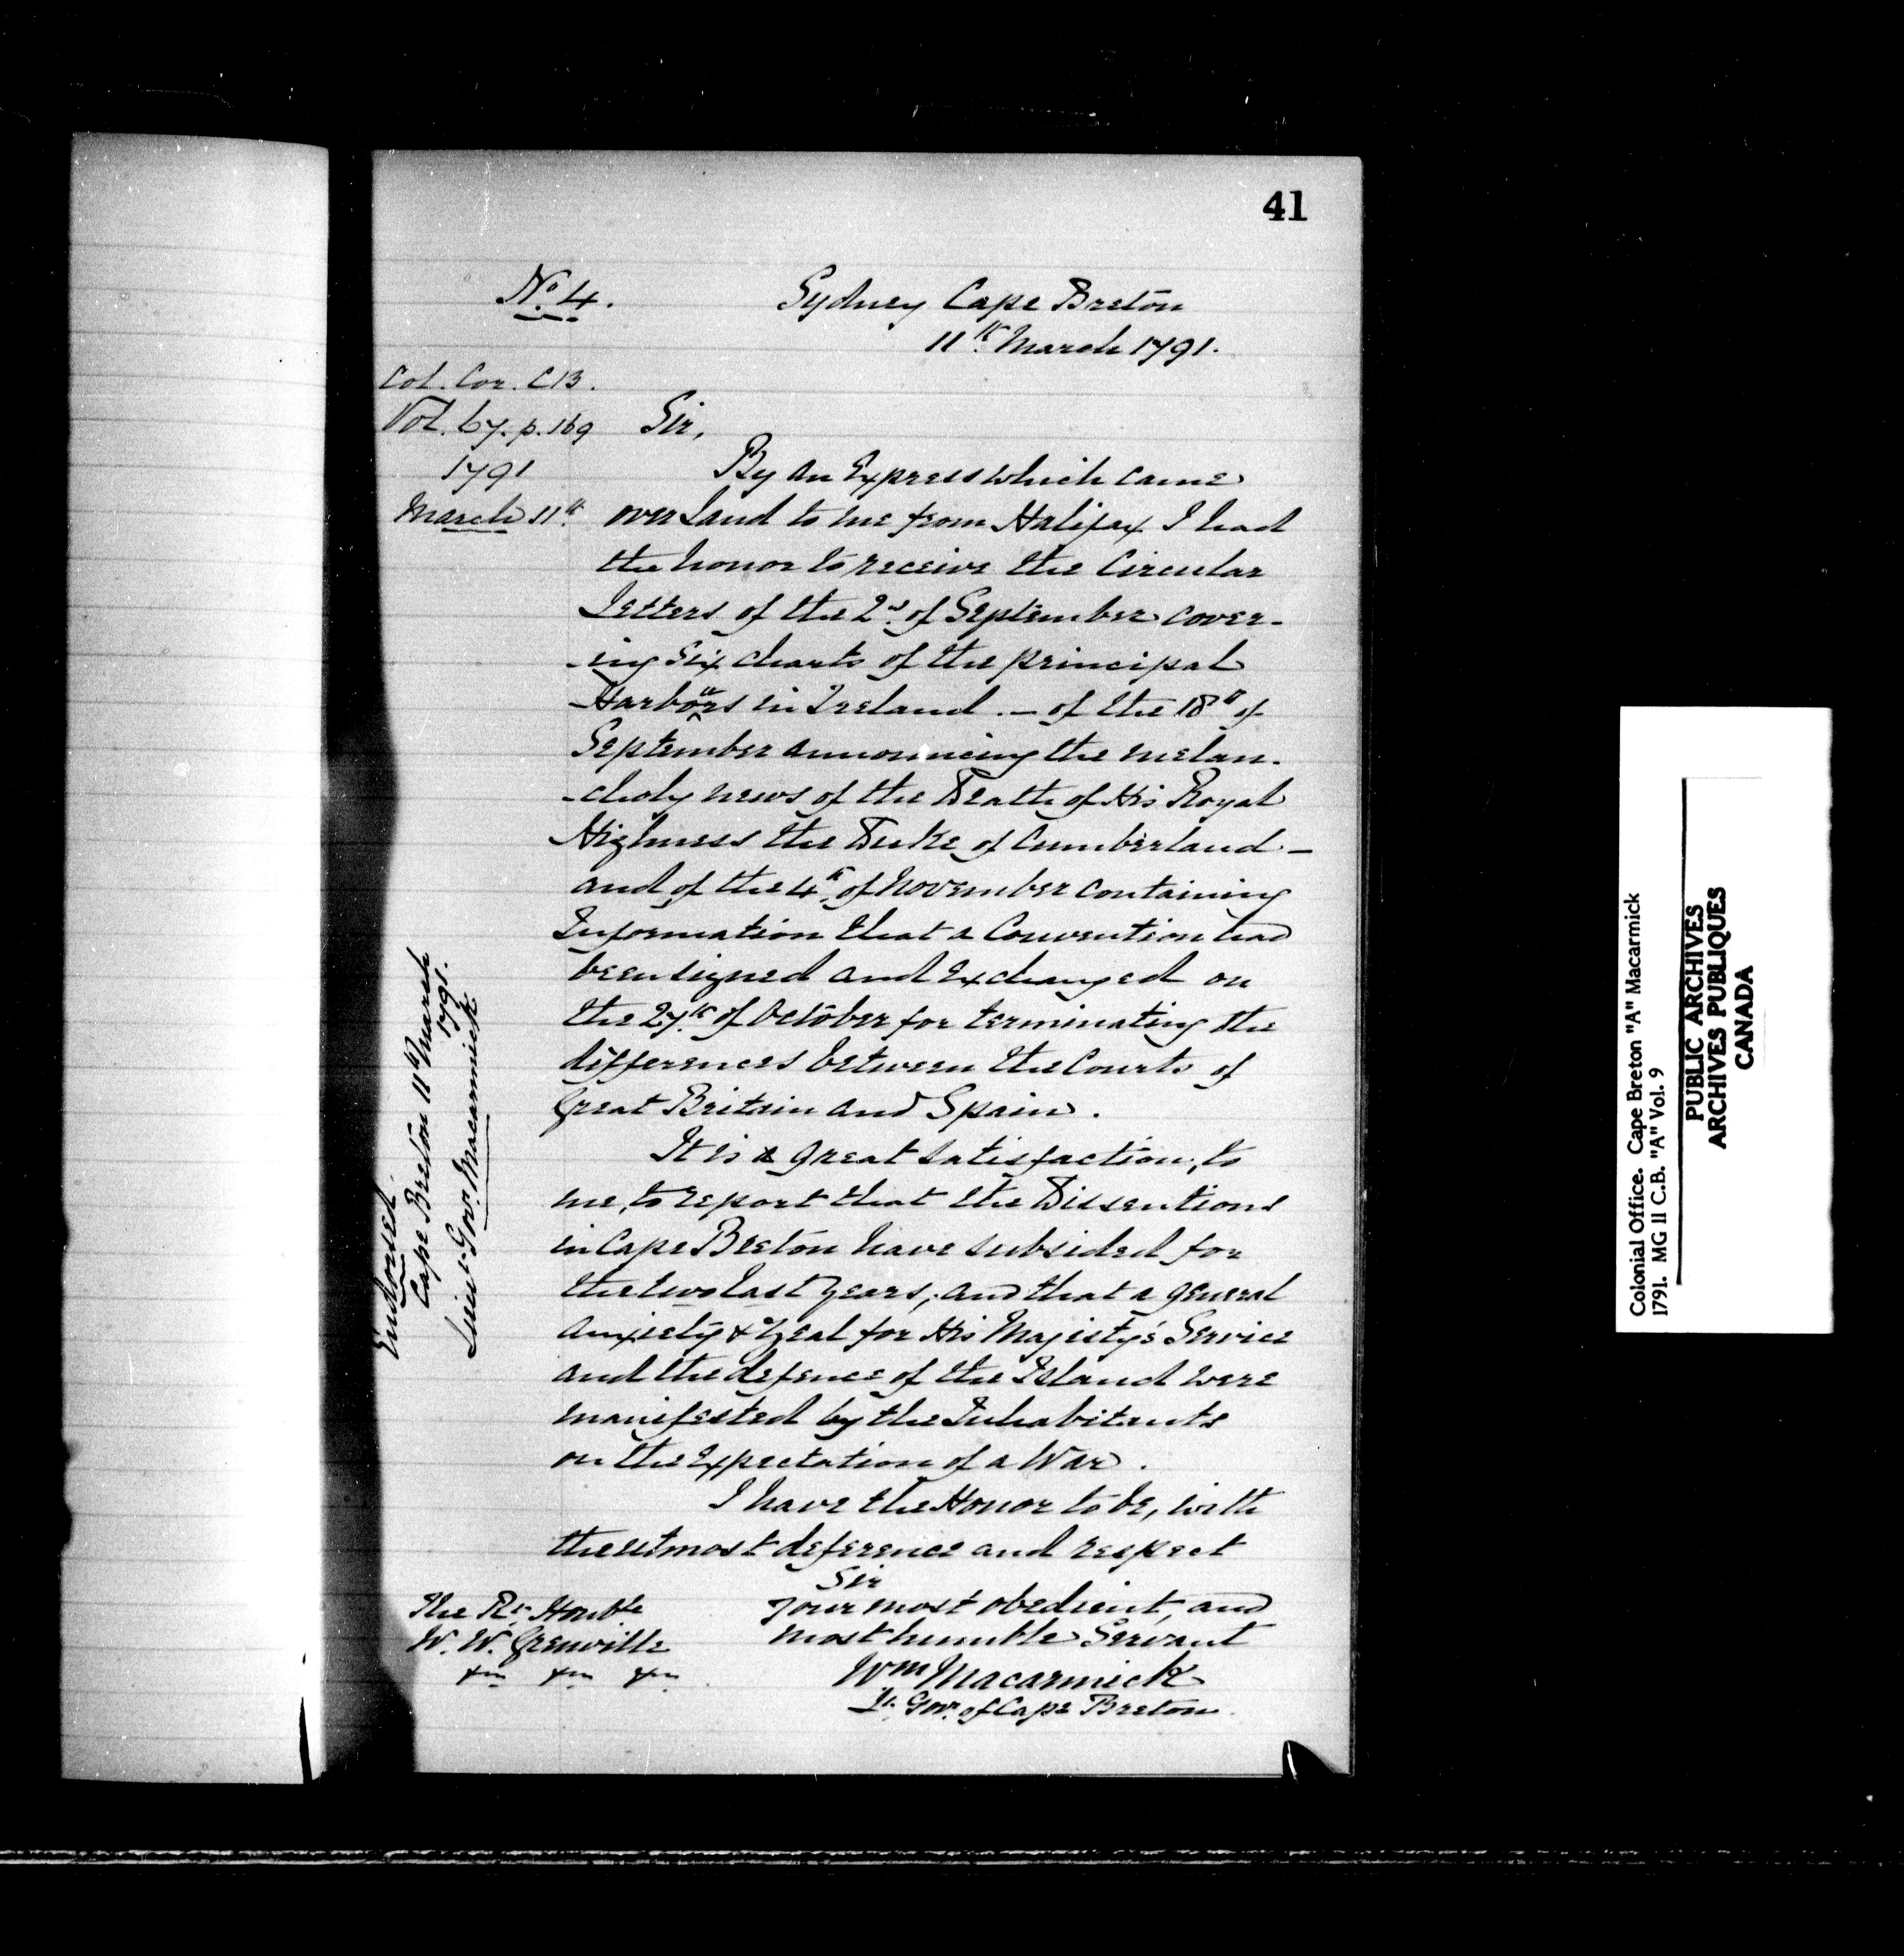 41
No. 4.
Sydney Cape Breton
11th March 1791.
Col. Cor. C.B.
Vol. 67. p. 169
1791
March 11th
Sir,
By an Express which came
over Land to me from Halifax I had
the honor to receive the Circular
Letters of the 2d. of September cover-
-ing Six charts of the principal
Harbours in Ireland. — of the 18th of
September announcing the melan-
-choly news of the Death of His Royal
Highness the Duke of Cumberland. —
and of the 4th of November containing
Information that a Convention had
been signed and Exchanged on
the 27th of October for terminating the
differences between the Courts of
Great Britain and Spain.
It is a great satisfaction, to
me, to report that the Dissentions
in Cape Breton have subsided for
the two last years, and that a general
Anxiety & Zeal for His Majesty's Service
and the defence of the Island were
manifested by the Inhabitants
on the Expectation of a War.
I have the Honor to be, with
the utmost deference and respect
Sir
Your most obedient, and
most humble Servant
Wm Macarmick
Lt. Govr. of Cape Breton.
The Rt. Honble
W. W. Grenville
&c &c &c
Endorsed.
Cape Breton 11th March
1791.
Lieut. Govr. Macarmick
Colonial Office. Cape Breton "A" Macarmick
1791. MG 11 C.B. "A" Vol. 9
PUBLIC ARCHIVES
ARCHIVES PUBLIQUES
CANADA